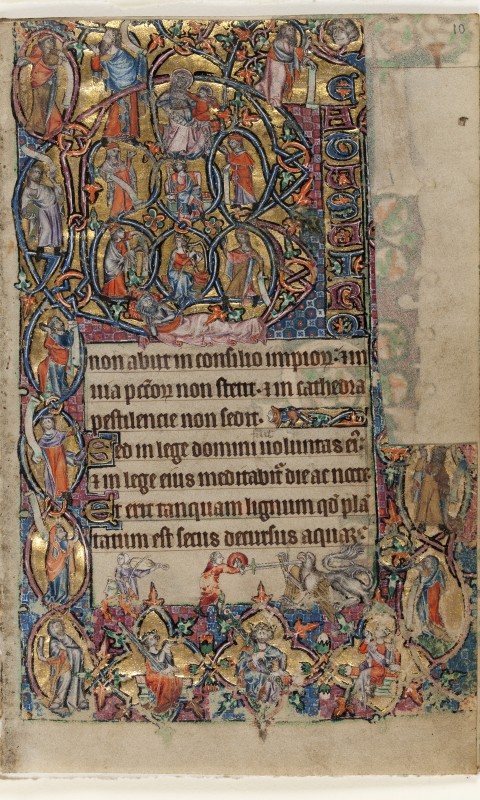 10
B
E
A
T
U
S
U
I
R
non abiit in consilio impioꝝ: ⁊ in
uia pctoꝝ non stetit. ⁊ in cathedra
pestilencie non sedit.
fuit
Sed in lege domini uoluntas eiꝰ:
⁊ in lege eius meditabit̄ die ac nocte
Et erit tanquam lignum qd̄ plā
tatum est secus decursus aquaꝝ.